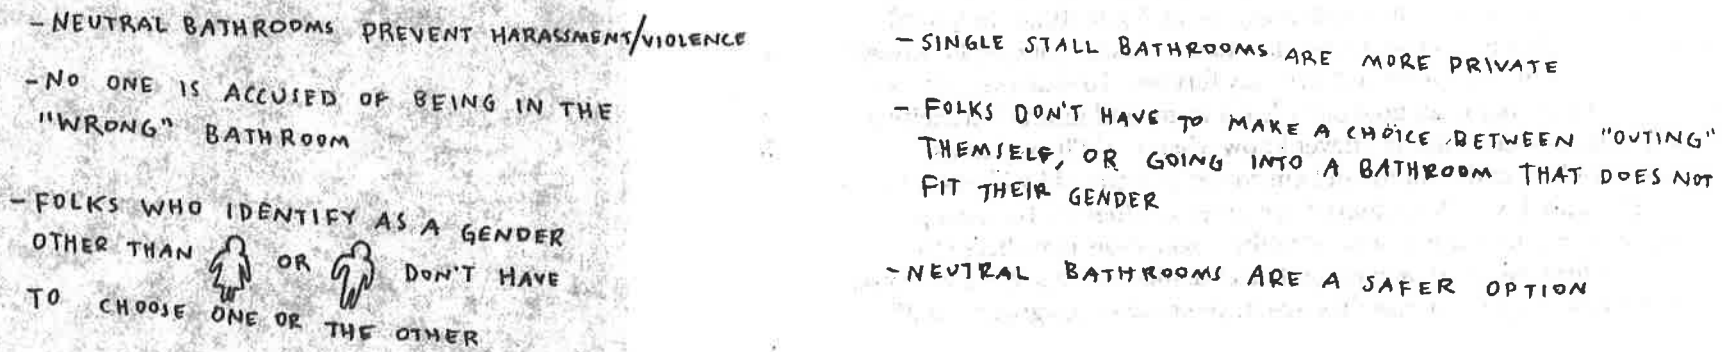 - NEUTRAL BATHROOMS PREVENT HARASSMENT/VIOLENCE
- NO ONE IS ACCUSED OF BEING IN THE
"WRONG" BATHROOM
- FOLKS WHO IDENTIFY AS A GENDER
OTHER THAN OR DON'T HAVE
TO CHOOSE ONE OR THE OTHER
- SINGLE STALL BATHROOMS ARE MORE PRIVATE
- FOLKS DON'T HAVE TO MAKE A CHOICE BETWEEN "OUTING"
THEMSELF, OR GOING INTO A BATHROOM THAT DOES NOT
FIT THEIR GENDER
- NEUTRAL BATHROOMS ARE A SAFER OPTION